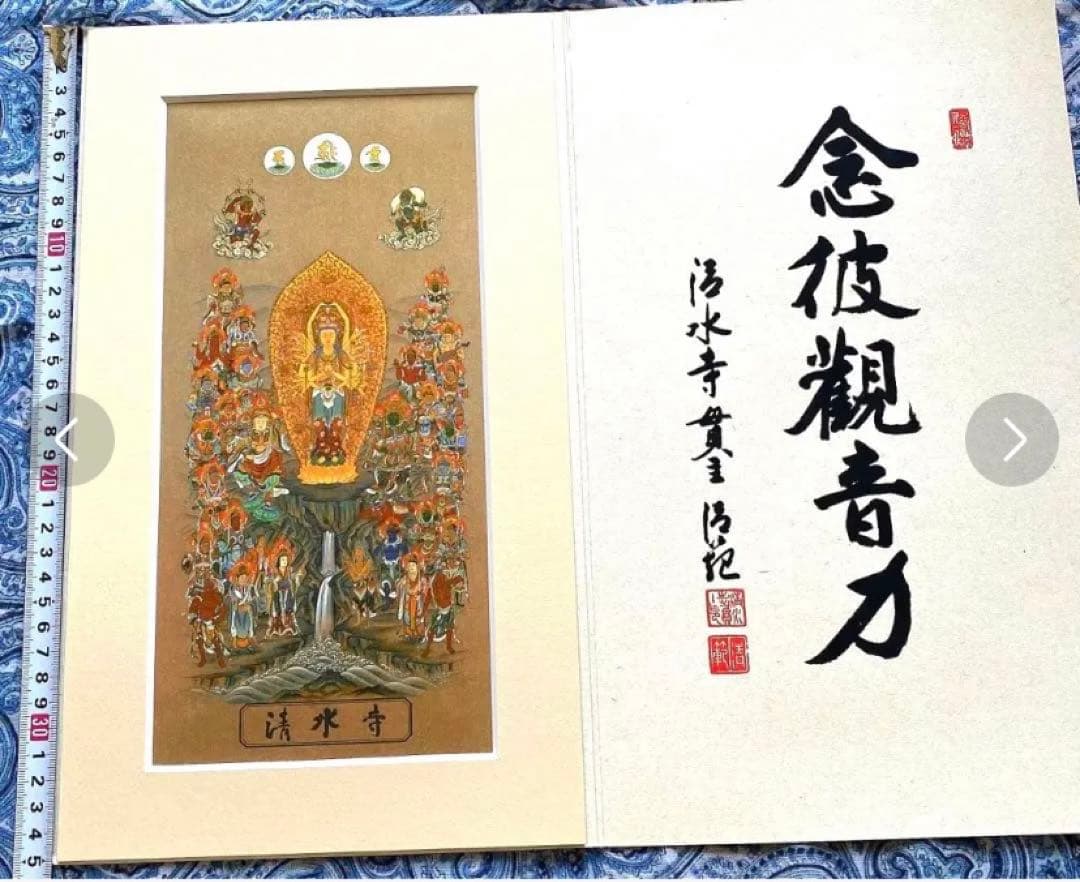 念彼觀音力
清水寺貫主 清範
清水寺
2 3 4 5 6 7 8 9 10 1 2 3 4 5 6 7 8 9 20 1 2 3 4 5 6 7 8 9 30 1 2 3 4 5